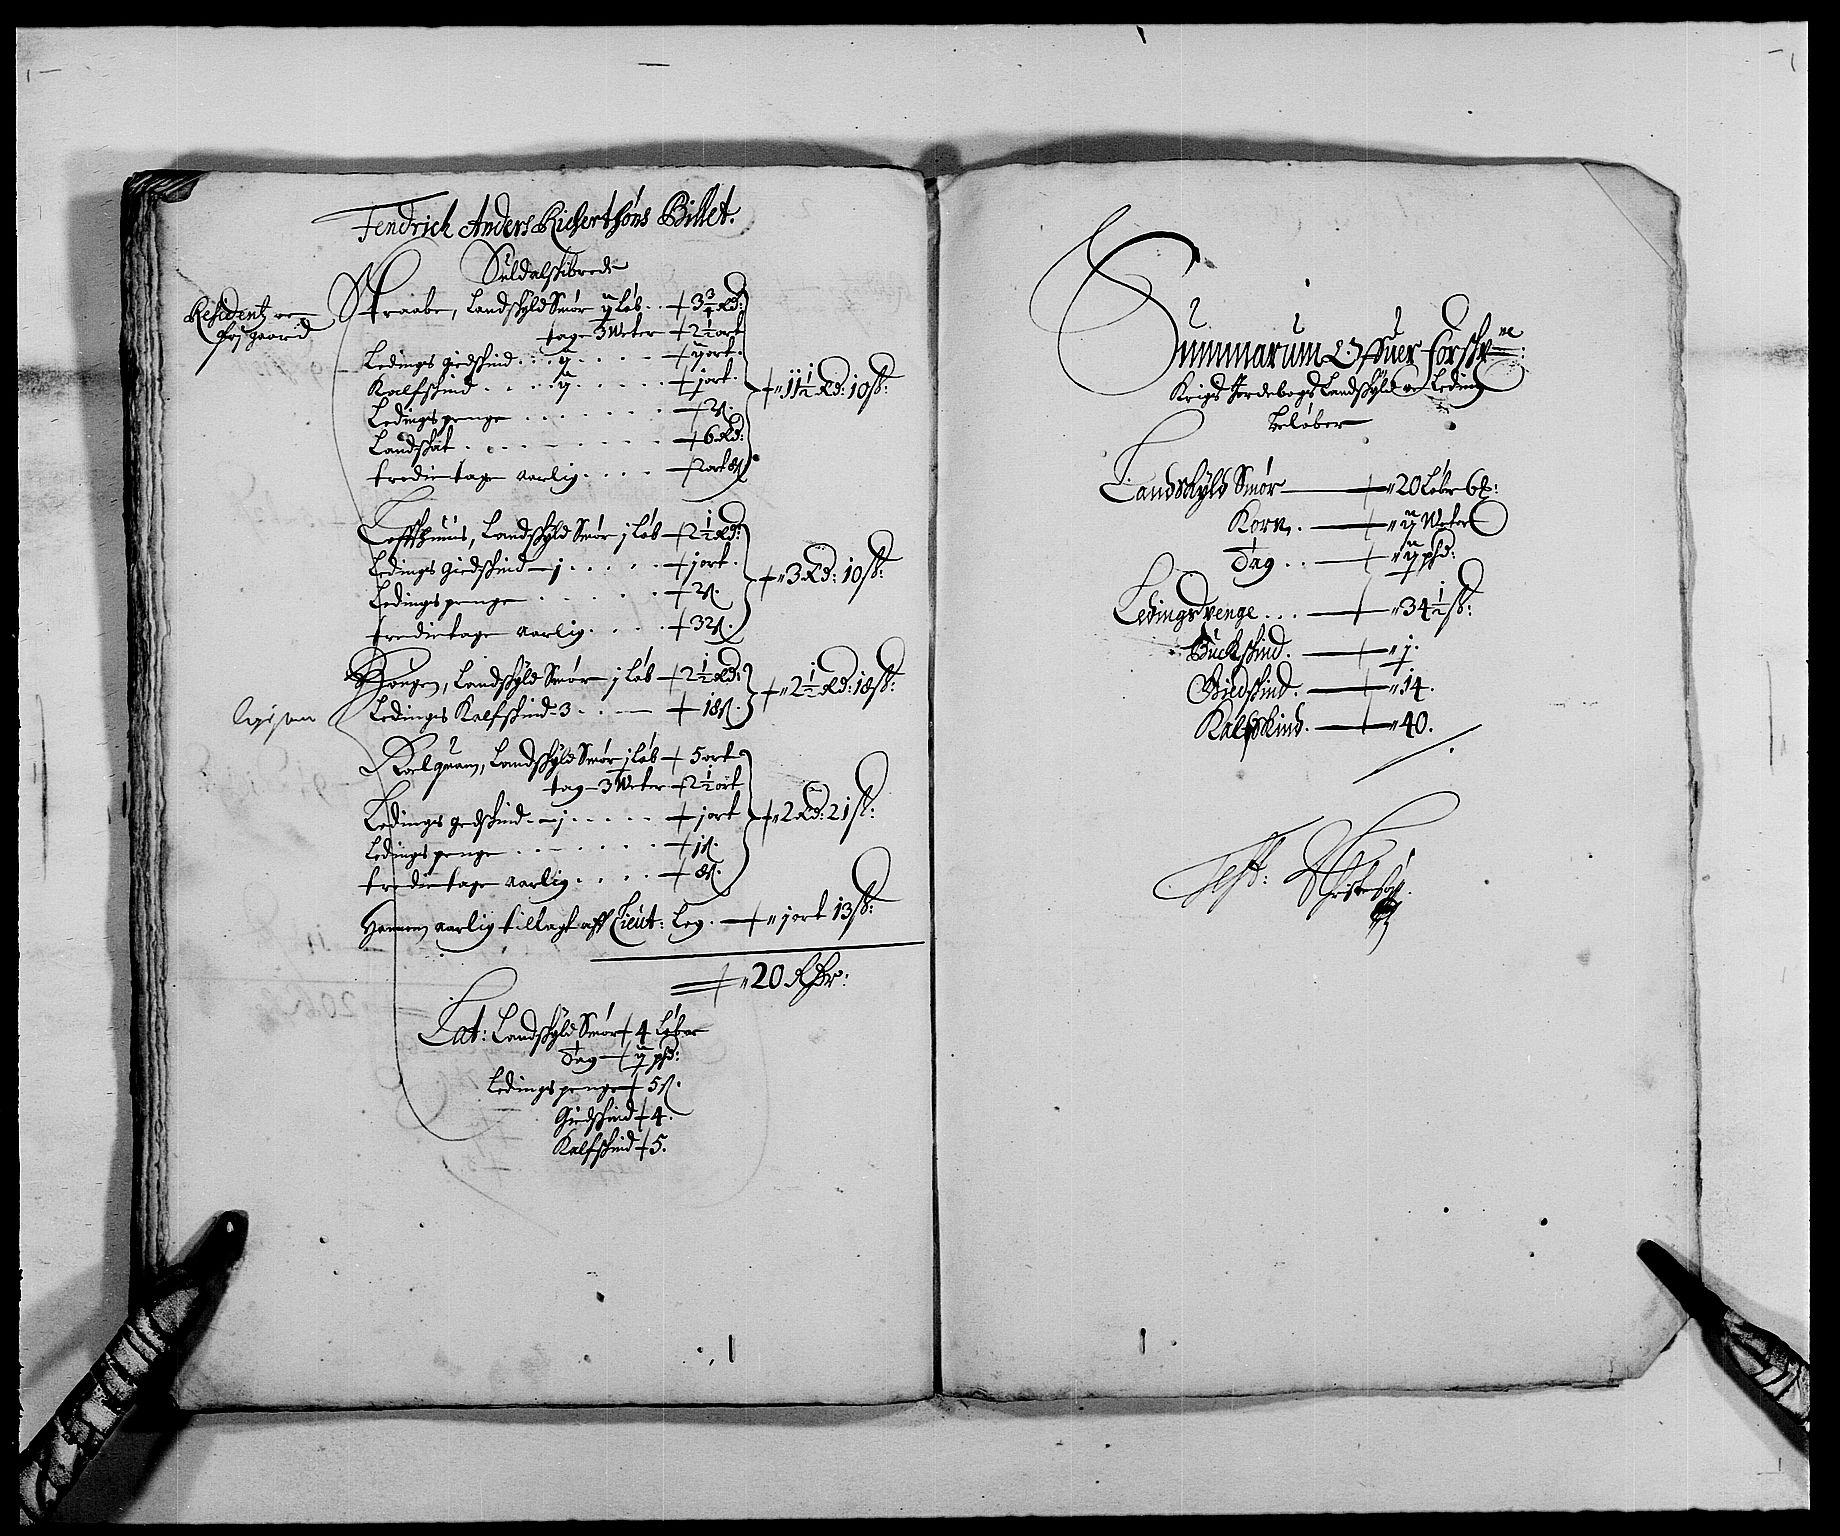 Fendrich Anders Richertsøns Billet.
Suldalskibrede
Residentz
gaard
Straabe, Landskyld Smør ij Løb .. 3 3/4 Rd:
tage 3 Weter 2 1/2 ort
Ledings giedskind .. ij ... ij ort.
Kalfskind .... ij .... j ort.
Ledings penge ...... 2 s.
Landskat ....... 6 Rd:
tredie tage aarlig .... 2 ort 8 s
11 1/2 Rd: 10 s:
Løffthuus, Landskyld Smør j Løb 2 1/2 Rd:
Ledings giedskind – j ..... j ort.
Ledings penge ...... 2 s.
tredie tage aarlig .... 32 s.
3 Rd: 10 s:
Hougen, Landskyld Smør j Løb 2 1/2 Rd:
Ledings Kalfskind - 3 ... 18 s.
2 1/2 Rd: 18 s:
Roelquam, Landskyld Smør j Løb 5 ort
tag – 3 Weter 2 1/2 ort
Ledings gedskind – j ..... j ort
Ledings penge ....... 1 s.
tredie tage aarlig .... 8 s.
2 Rd: 21 s:
Hannem aarlig tillagt aff Lieut: Ley. – j ort 13 s:
20 Rdr:
Lat: Landskyld Smør 4 Løber
Tag – ij pd:
Ledings penge 5 s.
Giedskind 4.
Kalfskind 5.
Summarum Offuer Forskr:ne
Krigs Jordebogs Landskyld oc Leding
beløber
Landskyld Smør – 20 Løber 6
Korn. – ij Weter
Tag .. – ij pd:
Ledings penge ... – 34 1/2 s:
Buckskind. – j.
Giedskind. – 14.
Kalfskind. – 40.
Test: